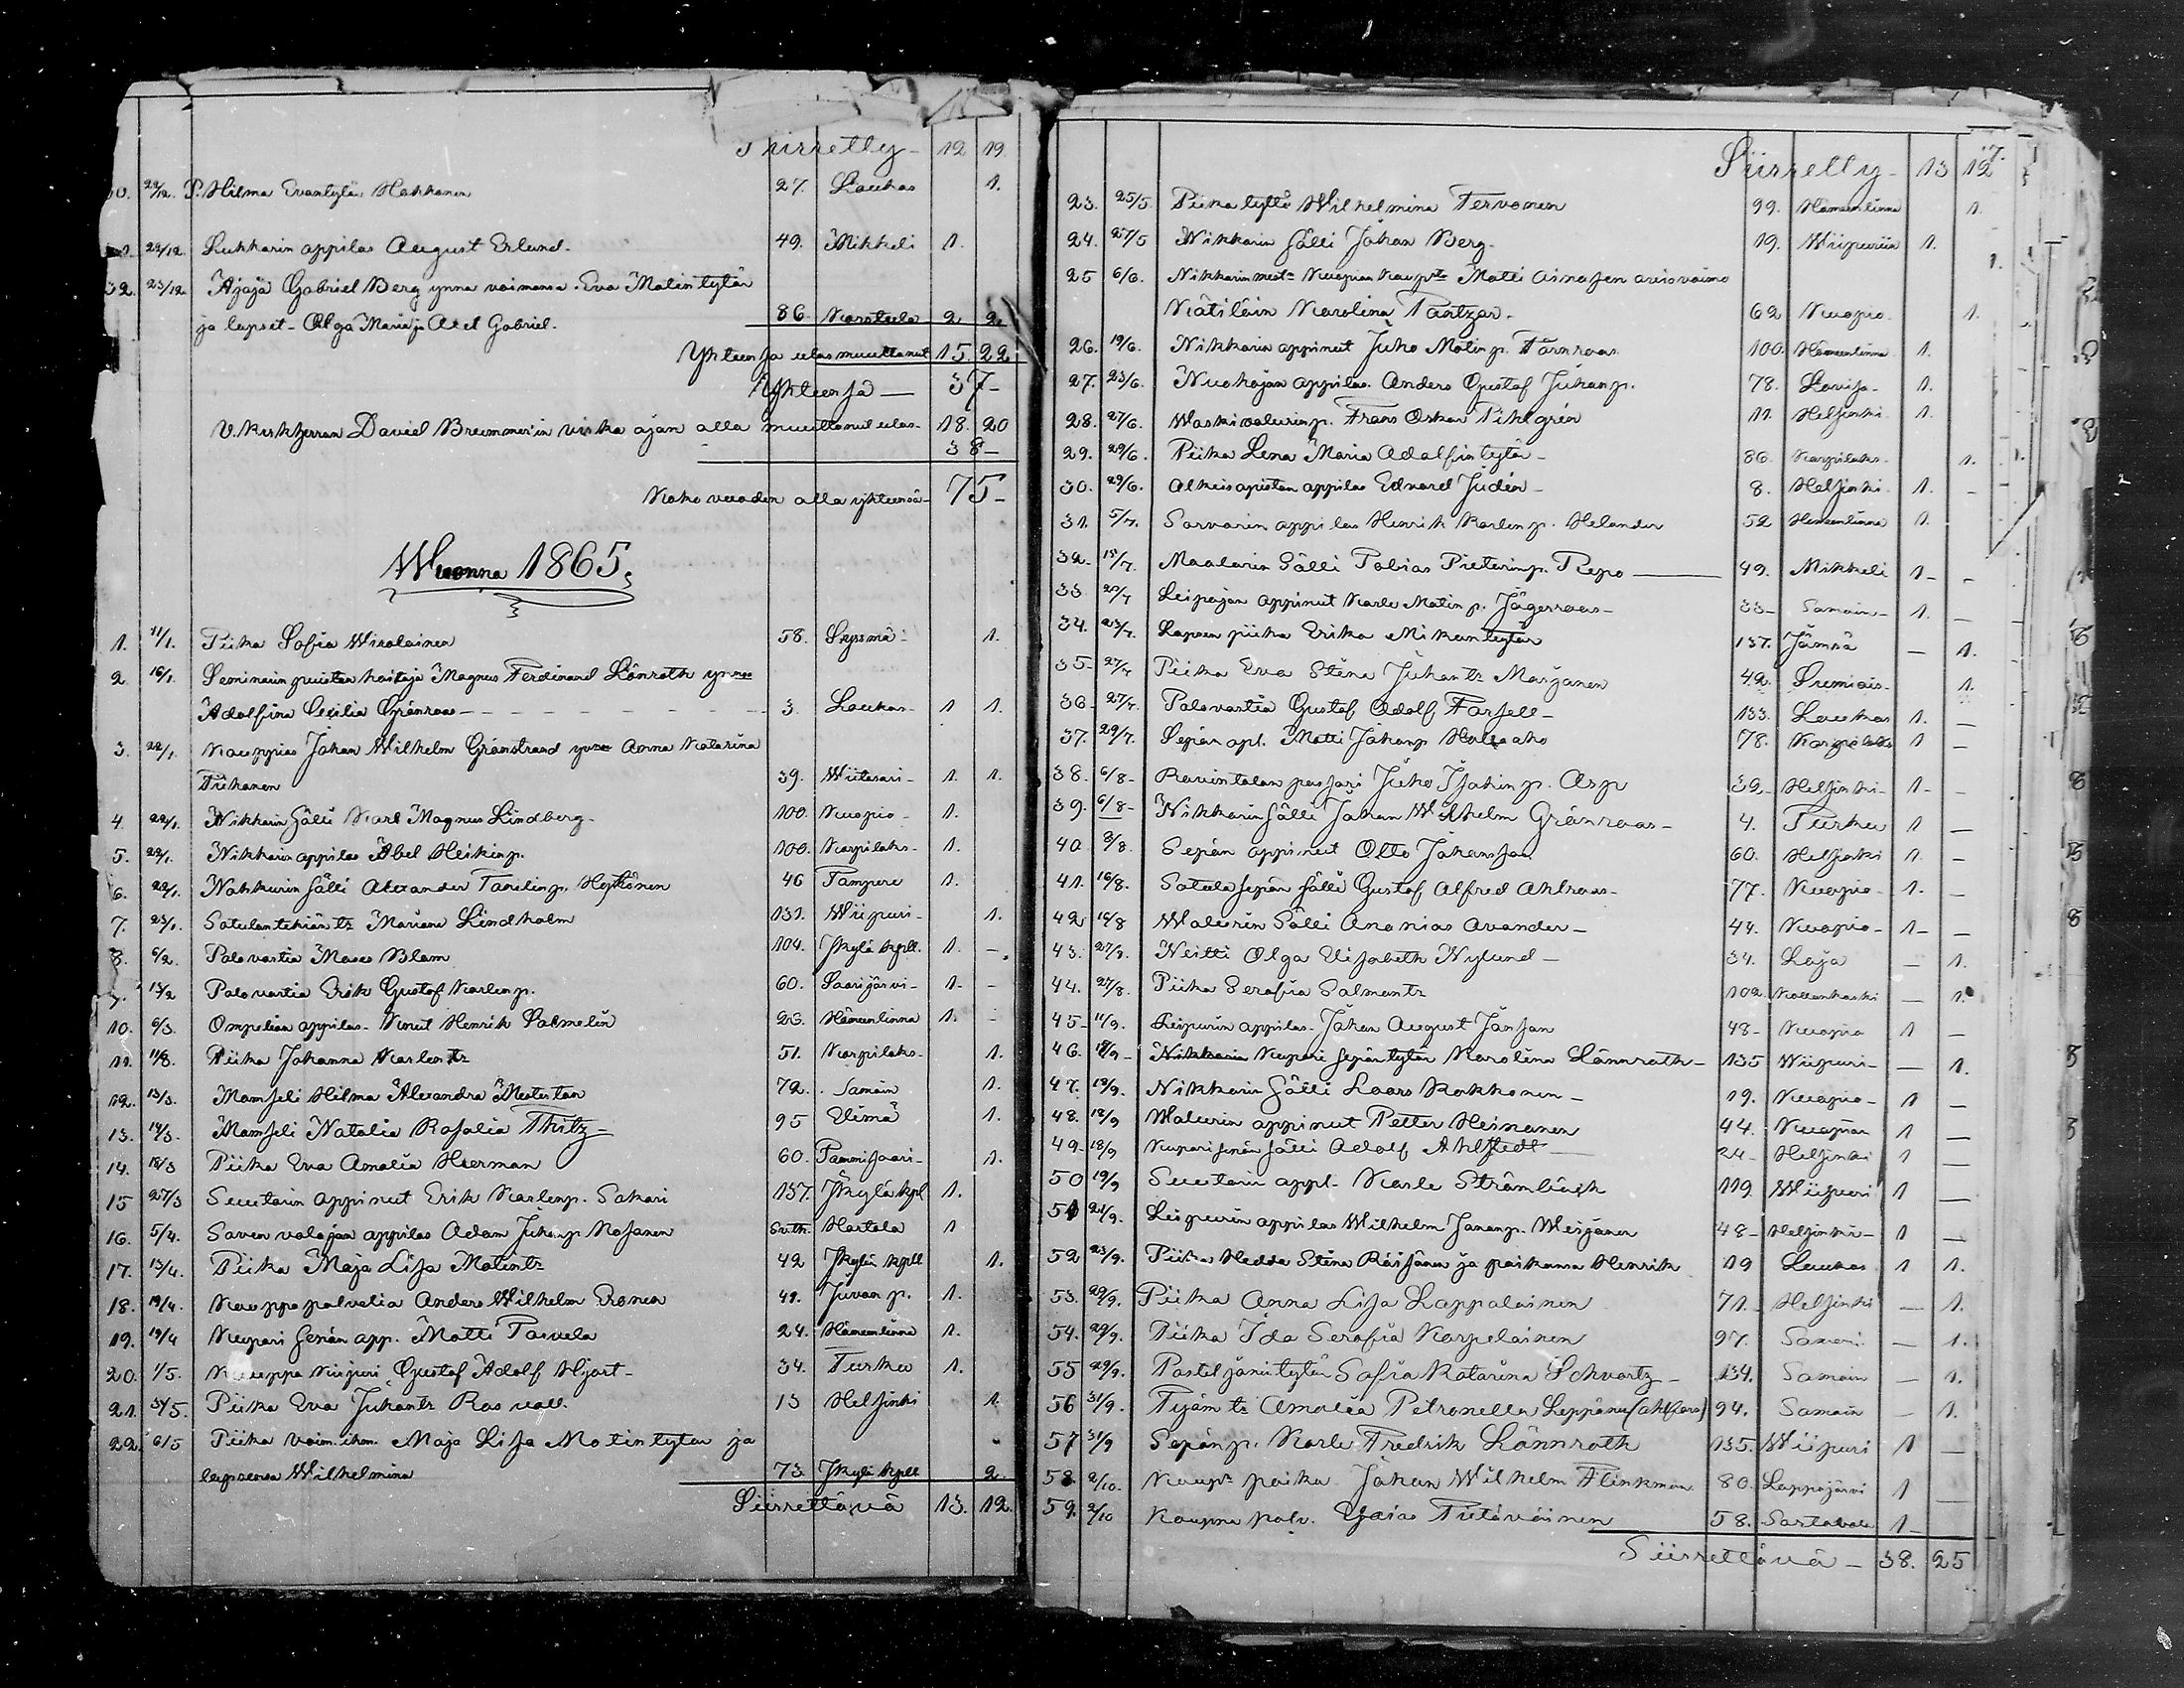 Siirretty - 12 19
30. 22/12. P. Hilma Evantytär Hakkanen 27. Laukas 1.
31. 22/12. Lukkarin appilas August Erlund. 49. Mikkeli 1.
32. 23/12. Ajaja Gabriel Berg ynna vaimonsa Eva Matintytär
ja lapset Olga Maria ja Axel Gabriel. 86. Karstula 2 2.
Yhteensä ulosmuuttanut 15. 22
Yhteensä — 37-
V. Kirkherran David Brummer'in virka ajan alla muuttanut ulos. 18. 20
38-
Koko vuoden alla yhteensä - 75-
Wuonna 1865.
1. 11/1. Piika Sofia Wirolainen 58. Sysmä 1.
2. 16/1. Seminarin puiston hoitaja Magnus Ferdinand Lönroth ynna
Adolfina Cecilia Grönroos - - - 3. Laukas. 1 1.
3. 22/1. Kauppias Johan Wilhelm Granstrand ynna Anna Katarina
Tiihonen 39. Wiitasari - 1. 1.
4. 22/1. Nikkarin Sälli Karl Magnus Lindberg. 100. Kuopio - 1.
5. 22/1. Nikkarin appilas Abel Heikinp. 100. Korpilaks. 1.
6. 22/1. Nahkurin Sälli Alexander Tanelinp. Heskönen 46 Tampere 1.
7. 23/1. Satulantekiän tr Mariana Lindholm 131. Wiipuri - 1.
8. 6/2. Palovartia Blom 104. Jkylä kpll. 1. -
9. 13/2 Palovartia Erik Gustaf Karlinp. 60. Saarijärvi - 1. -
10. 6/3. Ompelian appilas Knut Henrik Salmelin 23. Hämeenlinna 1. -
11. 11/3. Piika Johanna Karlentr 51. Korpilaks. 1.
12. 13/3. Mamseli Hilma Alexandra Mesterton 72. Samain 1.
13. 14/3. Mamseli Natalia Rosalia Thitz - 95 Elimä 1.
14. 18/3 Piika Eva Amalia Hierman 60. Tammisaari - 1.
15 27/3 Suutarin appinut Erik Karlenp. Sakari 137. Jkylä kpl 1.
16. 5/4. Saven valajan appilas Adam Juhanp Rosanen Hartola 1
17. 13/4. Piika Maja Lisa Matintr 42 Jkylä kpll 1.
18. 19/4. Kauppapalvelia Anders Wilhelm Eronen 41. Juvan p. 1.
19. 19/4 Kupari Sepän app. Matti Parvela 24. Hämeenlinna 1.
20. 1/5. Kauppa Gustaf Adolf Hjort - 34. Turku 1.
21. 3/5. Piika Eva Juhantr 13 Helsinki 1.
22. 6/5 Piika Maja Lisa Matintytär ja
lapsensa Wilhelmina 73. Jkylä kpll 2.
Siirrettävä 13. 12.
17.
Siirretty - 13 12
23. 25/5. Piika tyttö Wilhelmina Tervonen 99. Hämeenlinna 1.
24. 27/5 Nikkarin Sälli Johan Berg. 19. Wiipuriin 1.
25 6/6. Nikkarin mest. Kuopion kaup. Matti Asinasen aviovaimo
Kätilöin Karolina Pantzar. 62 Kuopio. 1.
26. 19/6. Nikkarin appinut Juho Matinp. Törnroos 100. Hämeenlinna 1.
27. 23/6. Nuohojan appilas. Anders Gustaf Juhanp. 78. Lovisa - 1.
28. 27/6. Waskivalurinp. Frans Oskar Pihlgrén 11. Helsinki 1.
29. 29/6. Piika Lena Maria Adolfintytär - 86. Korpilaks. 1.
30. 29/6. Alkeisopiston appilas Edvard Judén - 8. Helsinki 1. -
31. 5/7. Sorvarin appilas Henrik Karlinp. Helander 52 Hämeenlinna 1.
32. 15/7. Maalarin Sälli Tobias Pieterinp. Repo — 49. Mikkeli 1 - -
33 20/7 Leipojan appinut Karle Matinp. Jägerroos - 33 - Samain - 1. -
34. 23/7. Lapsen piika Erika Mikontytär 137. Jämsä - 1.
35 - 27/7 Piika Eva Stina Juhantr Marjanen 42. Sumiais - 1.
36 - 27/7. Palovartia Gustaf Adolf Forsell - 133. Laukas 1. -
37. 29/7. Sepän apl. Matti Johanp Hallaaho 78. Korpilaks 1 -
38. 6/8 - Ravintolan passari Juho Isakinp. Asp 32 - Helsinki - 1 - -
39. 6/8 - Nikkarin Sälli Johan Wilhelm Grönroos - 4. Turku 1 -
40 8/8. Sepän appinut Otto Johansson 60. Helsinki 1 - -
41. 16/8. Satula Sepän Sälli Gustaf Alfred Ahlroos - 77. Kuopio - 1. -
42 16/8 Walurin Sälli Ananias Avander - 44. Kuopio - 1 - -
43. 27/8. Neitti Olga Elisabeth Nylund - 34. Loja - 1.
44. 27/8. Piika Serafia Salmentr 102. - 1.
45 - 11/9. Leipurin appilas Johan August Jansan 48 - Kuopio 1 -
46. 18/9 - Nikkarin Kupari sepän tytär Karolina Lönnroth - 135 Wiipuri - - 1.
47. 18/9. Nikkarin Sälli Laars Kokkonen - 19. Kuopio - 1 -
48. 18/9 Walurin appinut Petter Heinonen 44. Kuopion 1 -
49 - 18/9 Kuparisepän Sälli Adolf Ahlstedt — 24 - Helsinki 1 -
50 19/9 Suutarin appl. Karle Strömberg 119 Wiipuri 1 -
51 21/9. Leipurin appilas Wilhelm Jananp. Weijanen 48 - Helsinki - 1 -
52 23/9. Piika Hedda Stina Räisänen ja poikansa Henrik 19 Laukas 1 1.
53. 29/9. Piika Anna Lisa Lappalainen 71. Helsinki - 1.
54. 29/9. Piika Ida Serafia Karpelainen 97. Samain - 1.
55 29/9. Postiljonintytär Sofia Katarina Schvartz - 134. Samain - 1.
56 31/9. Amalia Petronella Leppänen (Ahlfors) 94. Samain - 1.
57 31/9 Sepänp. Karle Fredrik Lönnroth 135. Wiipuri 1 -
58. 2/10. Kaup. poika Johan Wilhelm Flinkman 80. Lappajärvi 1 -
59. 2/10 Kauppa palv. Esaias Tiitiväinen 58. Sortavala 1 -
Siirrettävä - 38. 25